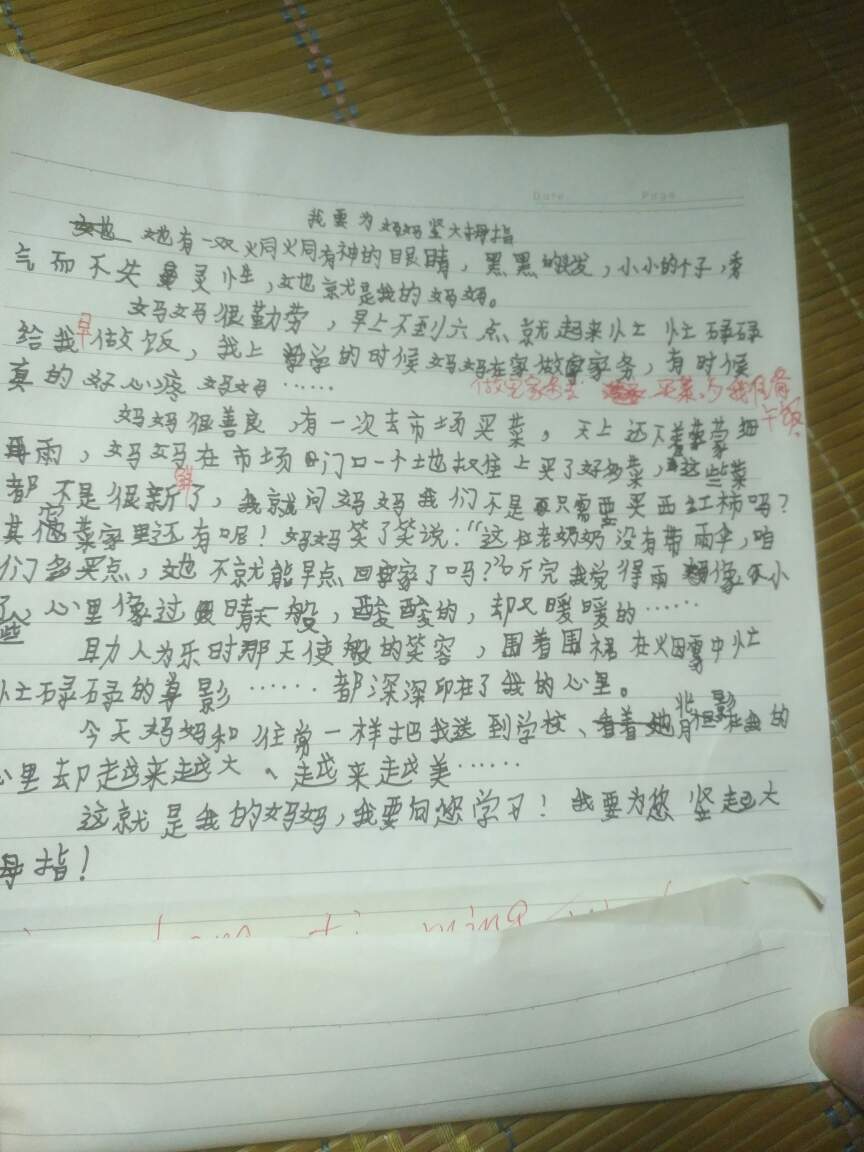 Date Page
我要为妈妈竖大拇指
她有一双炯炯有神的眼睛，黑黑的头发，小小的个子，秀
气而不失灵性，她就是我的妈妈。
妈妈很勤劳，早上不到六点就起来忙忙碌碌
给我早做饭，我上学的时候妈妈在家做家务，有时候
真的好心疼妈妈……
买菜 午饭
妈妈很善良，有一次去市场买菜，天上还下着蒙蒙细
雨，妈妈在市场门口一个地摊上买了好多菜，这些菜
都不是很新鲜了，我就问妈妈我们不是只需要买西红柿吗？
其它菜家里还有呢！妈妈笑了笑说：“这位老奶奶没有带雨伞，咱
们多买点，她不就能早点回家了吗？”听完我觉得雨像小
了些，心里像过晴天一般，酸酸的，却又暖暖的……
助人为乐时那天使般的笑容，围着围裙在烟雾中忙
忙碌碌的身影……都深深印在了我的心里。
今天妈妈和往常一样把我送到学校、背影但在我的
心里却越来越大、越来越美……
这就是我的妈妈，我要向您学习！我要为您竖起大
拇指！